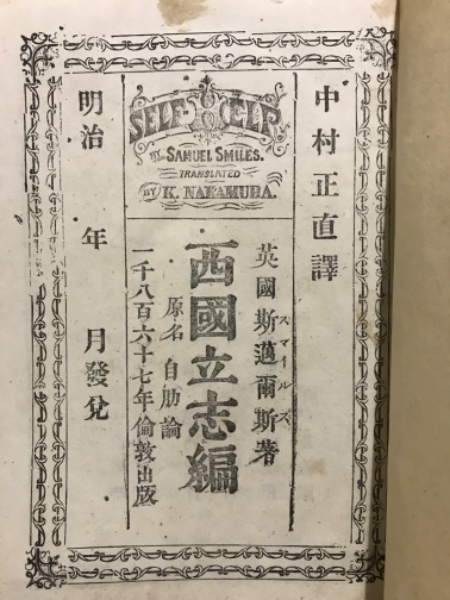 中村正直譯
SELF-HELP.
BY SAMUEL SMILES.
TRANSLATED
BY K. NAKAMURA.
英國斯邁爾斯著
スマイルス
西國立志編
原名自助論
一千八百六十七年倫敦出版
明治　年　月發兌